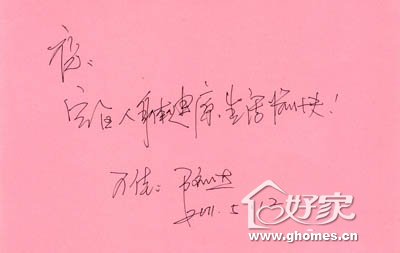 祝:
人身体健康、生活愉快!
万佳:
2011.5.12
好家
www.ghomes.cn